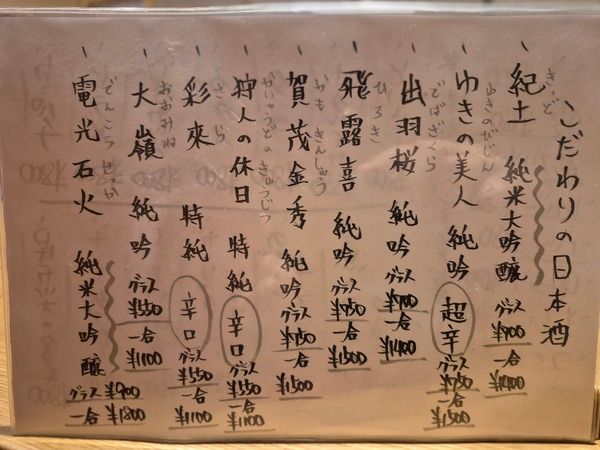 こだわりの日本酒
一 紀土 きっど 純米大吟醸 グラス ¥700 一合 ¥1400
一 ゆきの美人 ゆきのびじん 純吟 超辛 グラス ¥750 一合 ¥1500
一 出羽桜 でばざくら 純吟 グラス ¥700 一合 ¥1400
一 飛露喜 ひろき 純吟 グラス ¥750 一合 ¥1500
一 賀茂金秀 かもきんしゅう 純吟 グラス ¥750 一合 ¥1500
一 狩人の休日 かりゅうどのきゅうじつ 特純 辛口 グラス ¥550 一合 ¥1100
一 彩來 さら 特純 辛口 グラス ¥550 一合 ¥1100
一 大嶺 おおみね 純吟 グラス ¥550 一合 ¥1100
一 電光石火 でんこうせっか 純米大吟醸 グラス ¥900 一合 ¥1800